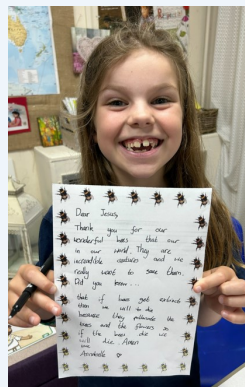 Dear Jesus,
Thank you for our
wonderful bees that our
in our world. They are
incredible creatures and we
really want to save them.
Did you know...
that if bees get extinct
then we will to die
because they pollinate the
trees and the flowers so
if the bees die we
will die. Amen
Annabelle